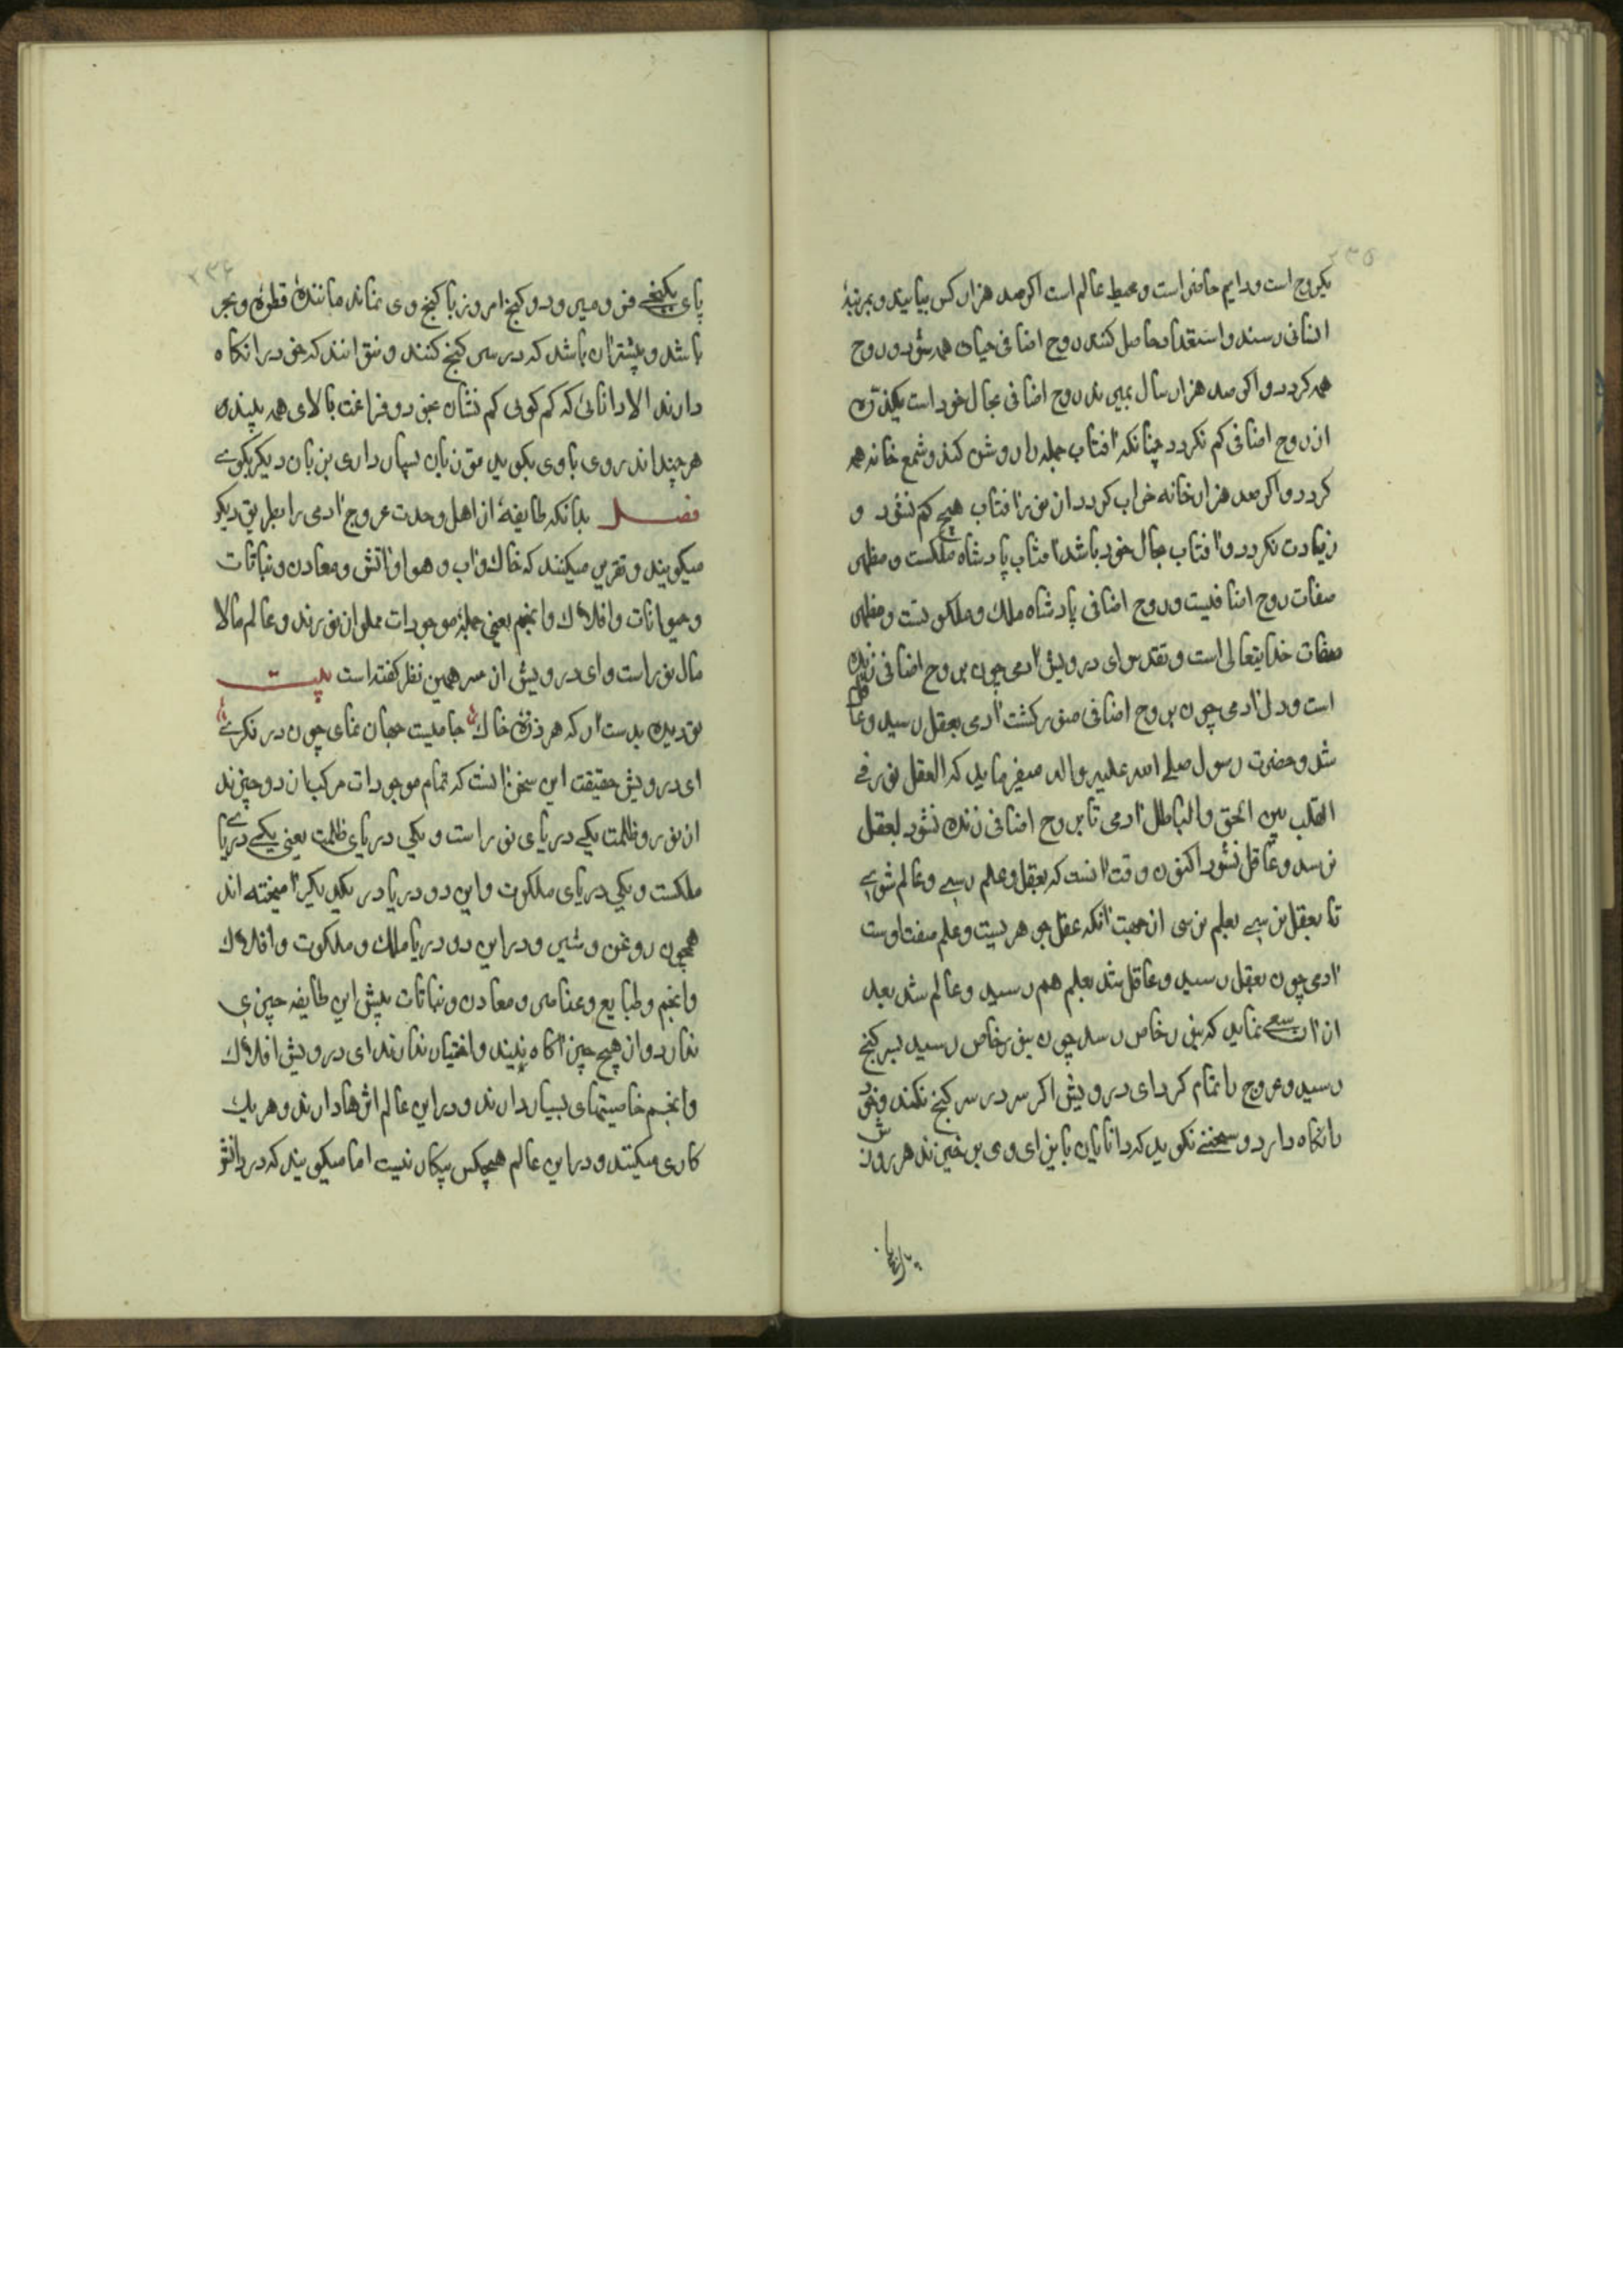 ۲۳۵
یکروح است و دایم حاضر است و محیط عالم است اکر صد هزار کس بیایند و بمرتبهٔ
انسانی رسند و استعداد حاصل کنند روح اضافی حیات همه شود و روح
همه کردد و اکر صد هزار سال بمیرند روح اضافی بحال خود است یکذره
از روح اضافی کم نکردد چنانکه آفتاب جمله را روشن کند و شمع خانه همه
کردد و اکر صد هزار خانه خراب کردد از نور آفتاب هیچ کم نشود و
زیادت نکردد و آفتاب بحال خود باشد آفتاب پادشاه ملکست و مظهر
صفات روح اضافیست و روح اضافی پادشاه ملک و ملکوتست و مظهر
صفات خدایتعالی است و تقدس ای درویش آدمی چون بروح اضافی زنده
است و دل آدمی چون بروح اضافی منور کشت آدمی بعقل رسید و عاقل
شد و حضرت رسول صلی الله علیه واله میفرماید که العقل نور فی
القلب بین الحق والباطل آدمی تا بروح اضافی زنده نشود بعقل
نرسد و عاقل نشود اکنون وقت آنست که بعقل و علم رسی و عالم شوی
تا بعقل نرسی بعلم نرسی از جهت آنکه عقل جوهریست و علم صفت اوست
آدمی چون بعقل رسید و عاقل شد بعلم هم رسید و عالم شد بعد
از آن سعی نماید که بنور خاص رسد چون بنور خاص رسید بسر کنج
رسید و عروج را تمام کرد ای درویش اکر سر در سر کنج نکند و خود
را نکاه دارد و سخنی نکوید که دانایان بایذای وی برخیزند هر روزش
پای بکنجی
۲۳۶
پای بکنجی فرو میرود و کنج امروز با کنج وی نماند مانند قطره و بحر
باشد و بیشتر آن باشد که در سر کنج کنند و نتوانند که خود را نکاه
دارند الا دانائی که کم کوی کم نشان عجز و فراغت بالای همه بیند
هر چند اندر وی با وی بکوید تو زبان بسپار داری بزبان دیکر بکوی
فصل بدانکه طایفهٔ از اهل وحدت عروج آدمی را بطریق دیکر
میکویند و تقریر میکنند که خاک و آب و هوا و آتش و معادن و نباتات
و حیوانات و افلاک و انجم یعنی جملهٔ موجودات مملو از نورند و عالم مالا
مال نور است و ای درویش از سر همین نظر کفته است بیت
تو دیده بدست آر که هر ذره خاک جامیست جهان نمای چون در نکری
ای درویش حقیقت این سخن آنست که تمام موجودات مرکب از دو چیزند
از نور و ظلمت یکی دریای نور است و یکی دریای ظلمت یعنی یکی دریای
ملکست و یکی دریای ملکوت و این دو دریا در یکدیکر آمیخته اند
همچون روغن و شیر و در این دو دریا ملک و ملکوت و افلاک
و انجم و طبایع و عناصر و معادن و نباتات پیش این طایفه چیزی
ندارد و از هیچ چیز آکاه نیند و اختیار ندارند ای درویش افلاک
و انجم خاصیتهای بسیار دارند و در این عالم اثرها دارند و هر یک
کاری میکنند و در این عالم هیچکس بیکار نیست اما میکویند که در دانش